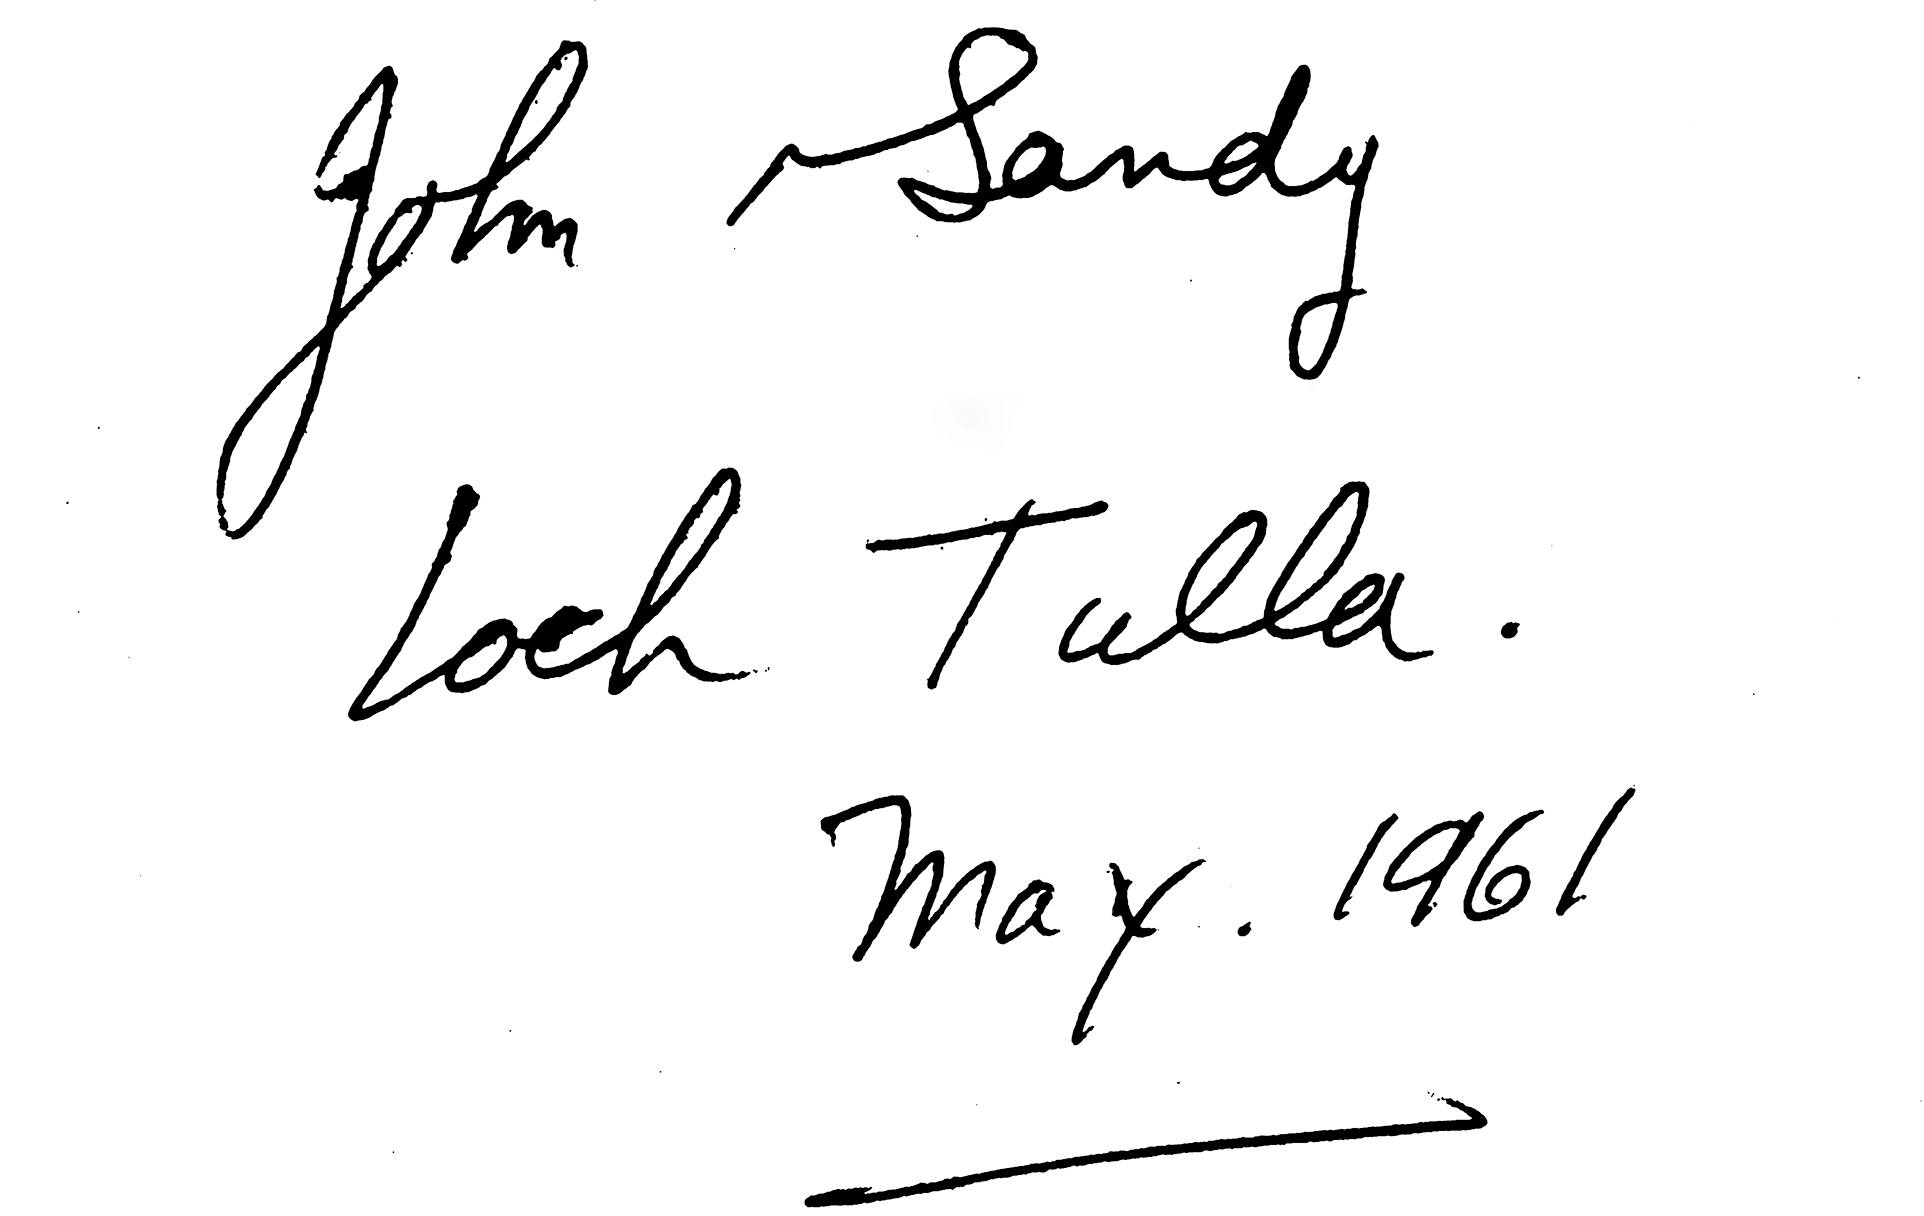 John Sandy
Loch Tulla.
May. 1961